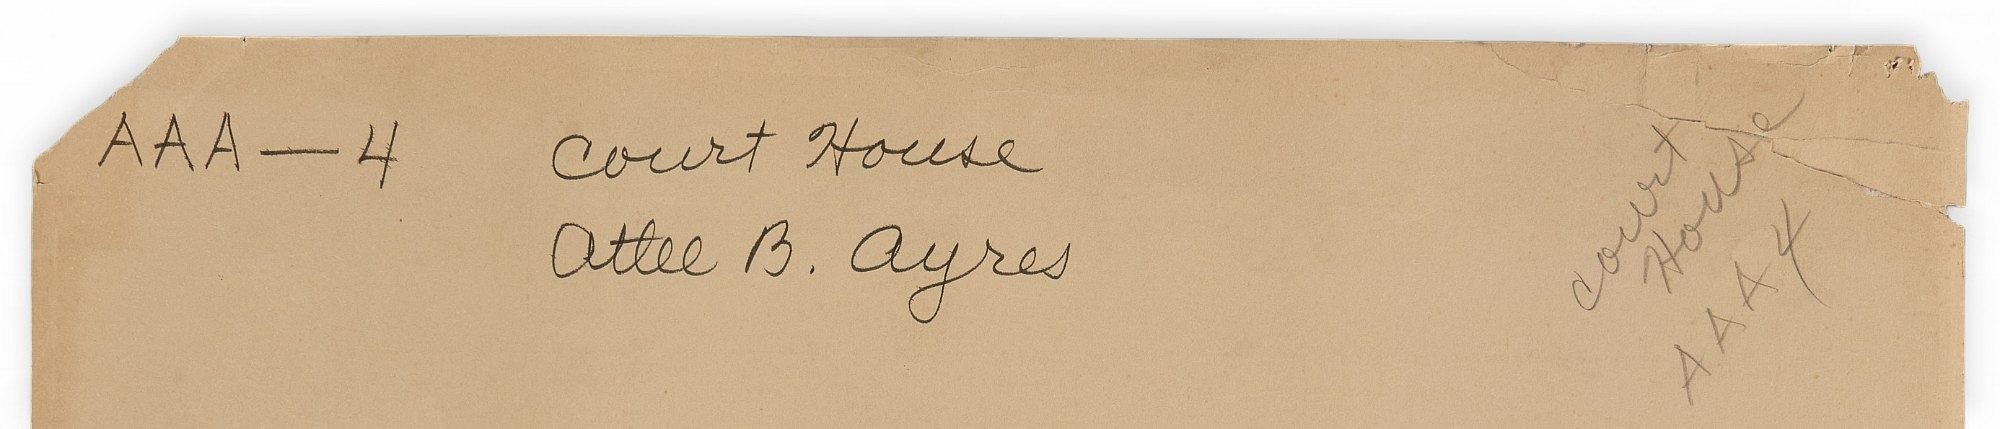 AAA — 4 Court House
Atlee B. Ayres
Court
House
AAA 4